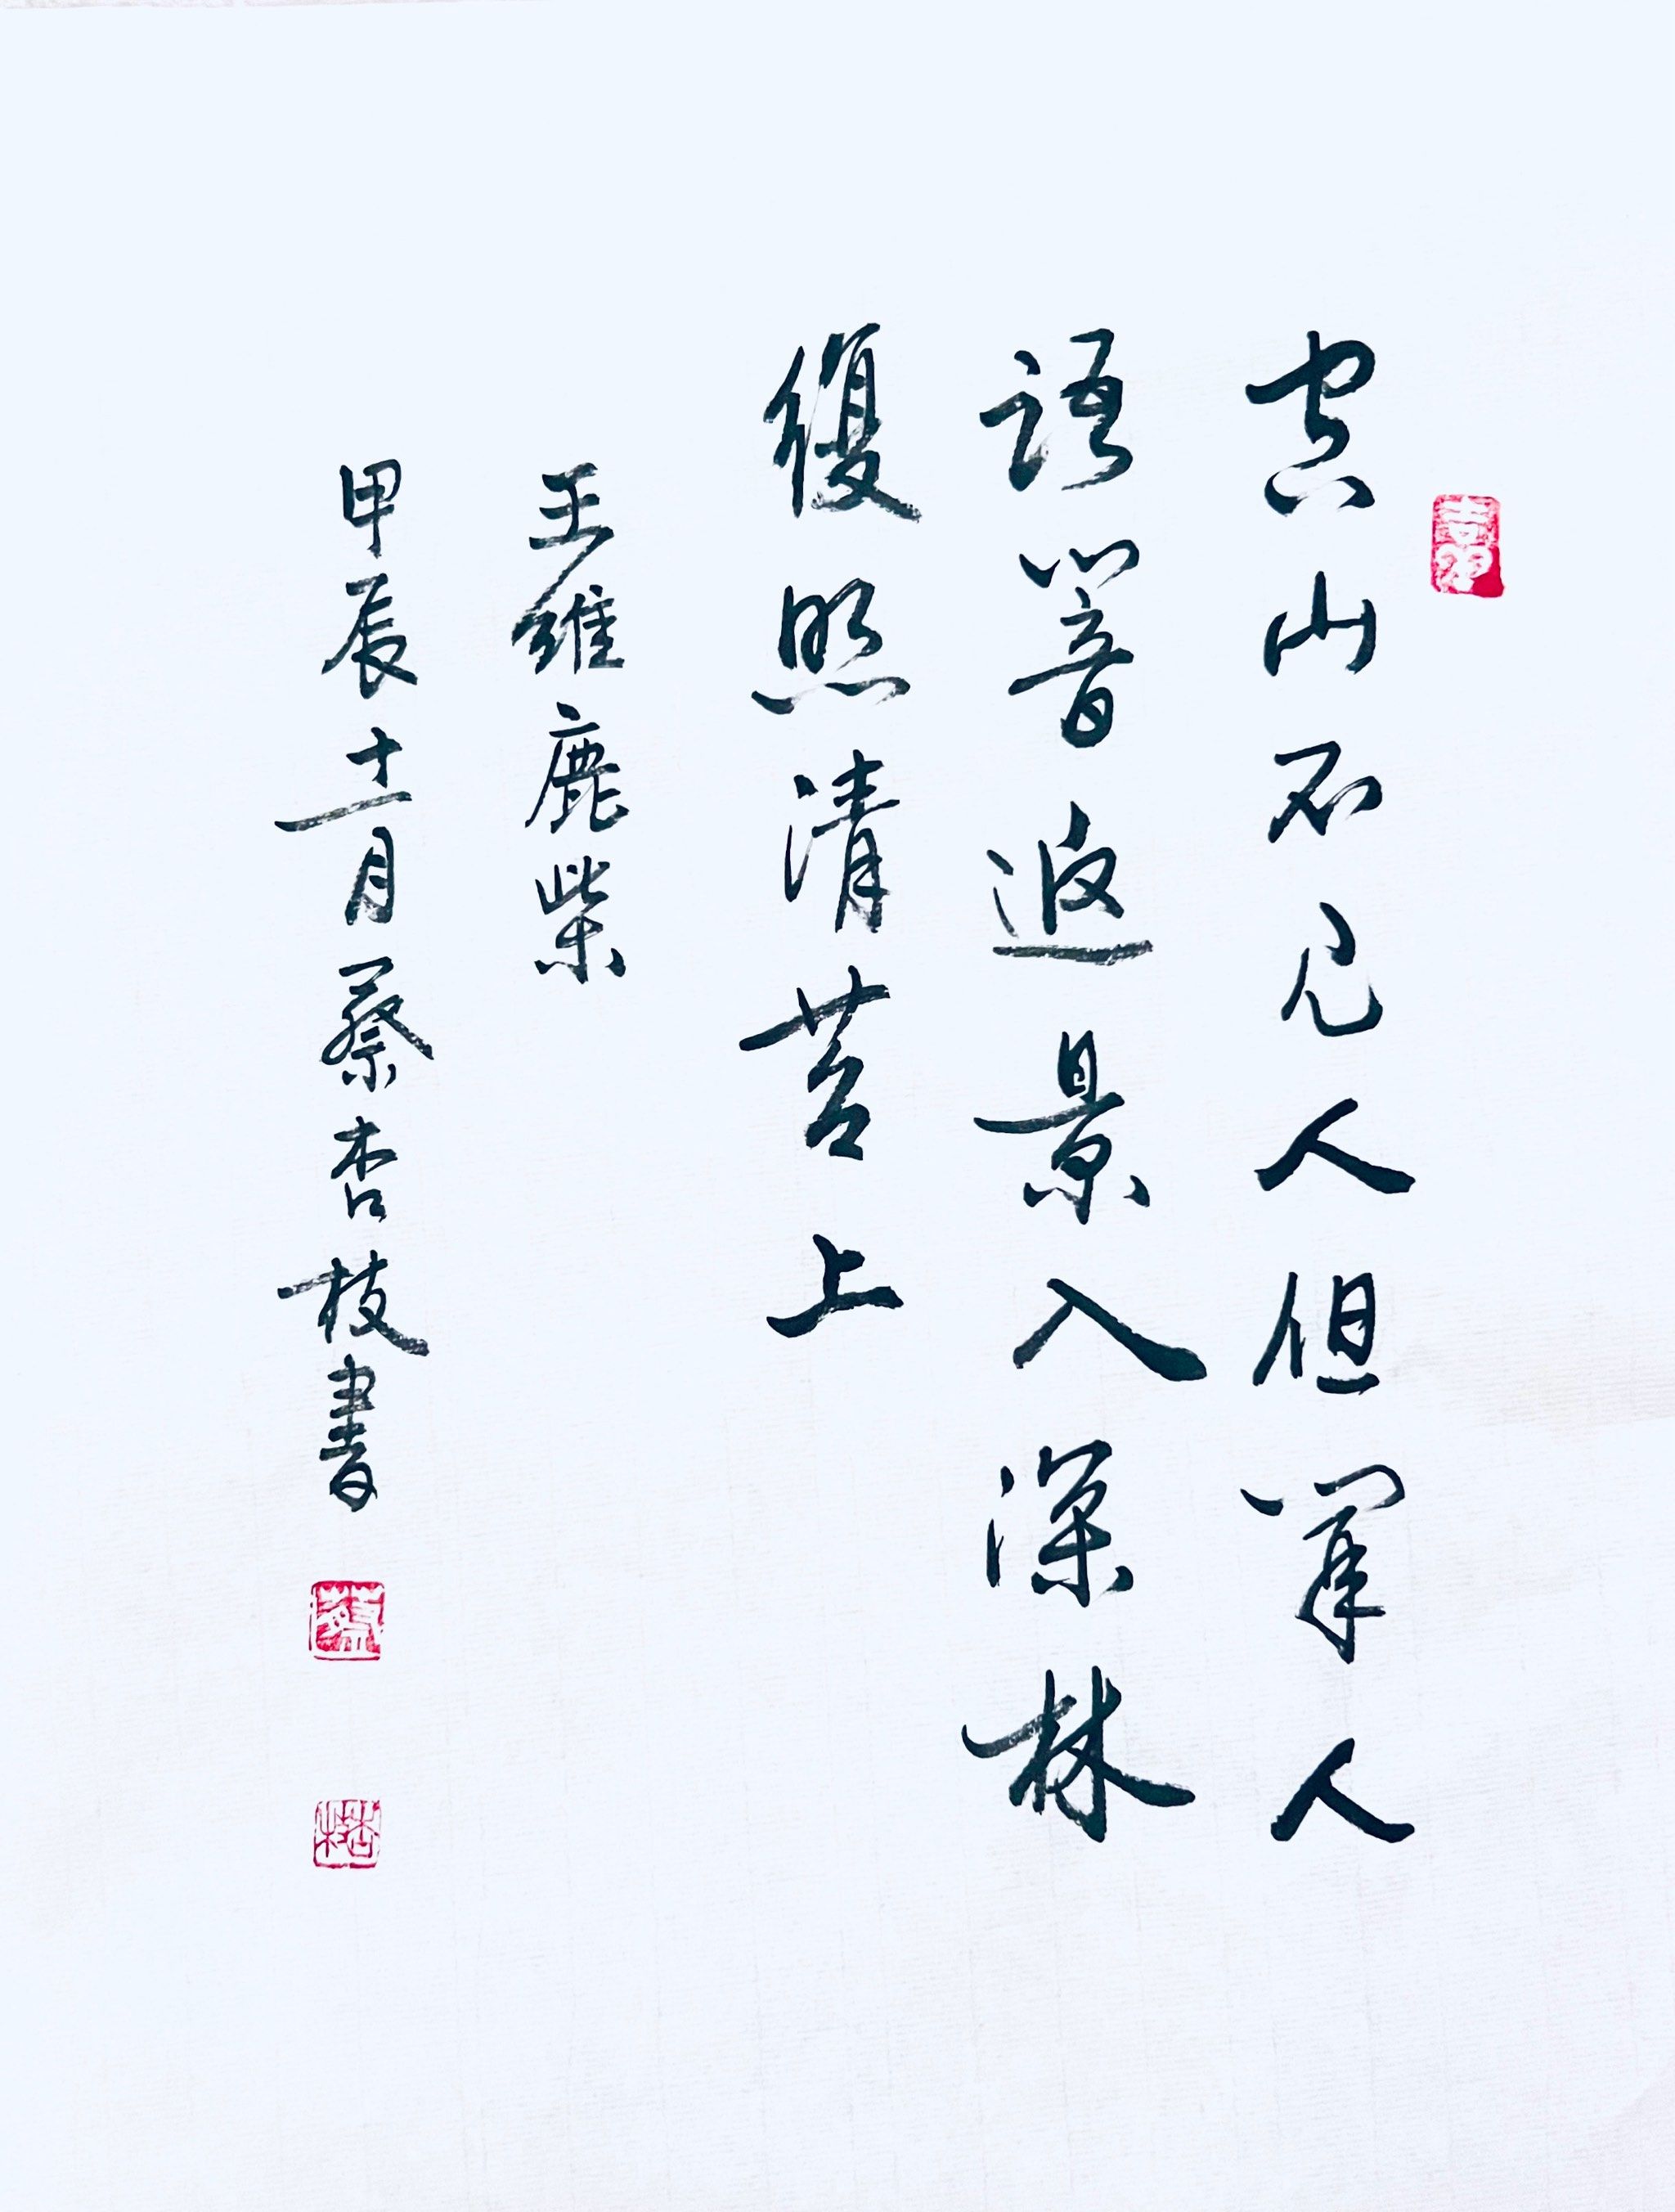 空山不見人但聞人
語響返景入深林
復照清苔上
王維鹿柴
甲辰十二月蔡杏枝書
杏枝